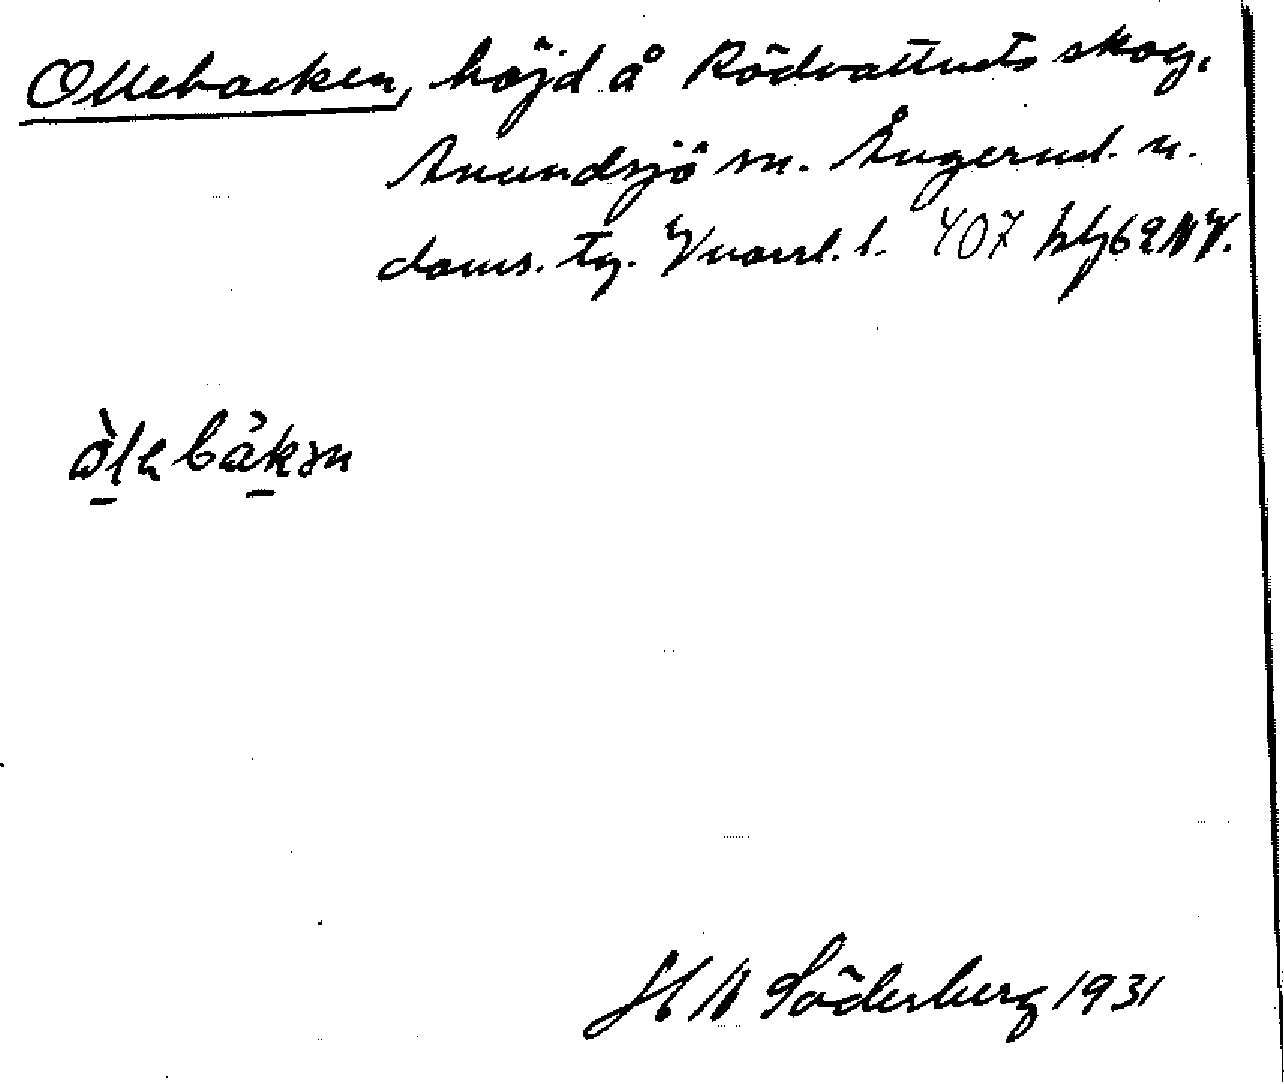 Ollebacken, höjd å Rödvattnets skog.
Anundsjö sn. Ångerml. n.
doms. tg. Y norrl. l. 407 hlj 62 NV.
òlebàkən
H N Söderberg 1931